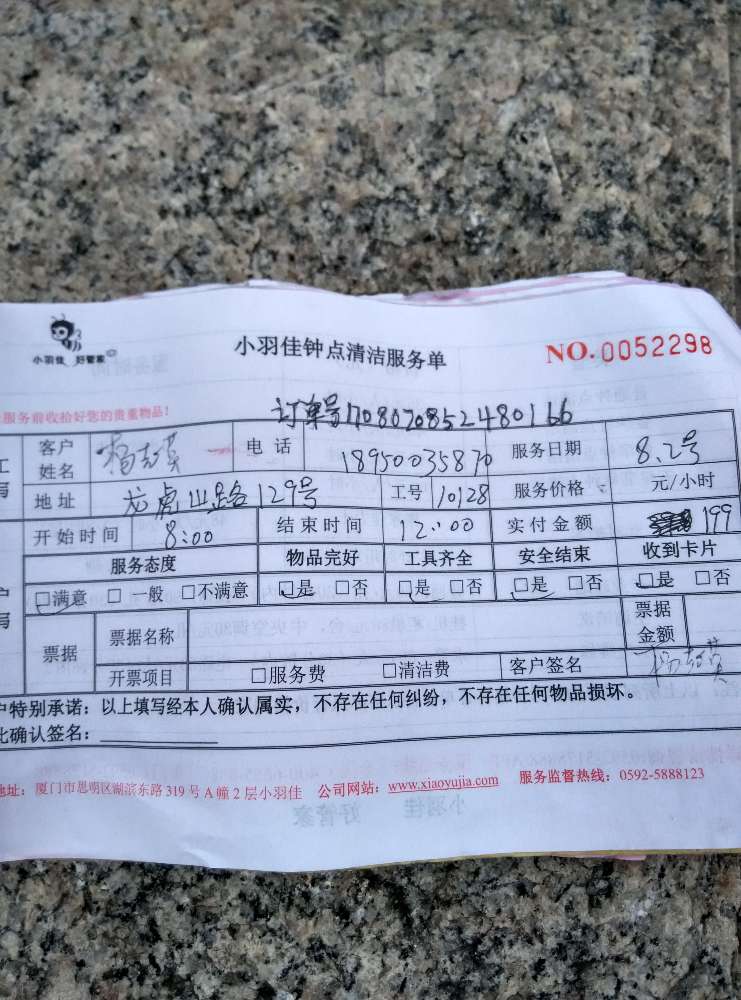 小羽佳 好管家
小羽佳钟点清洁服务单
NO.0052298
服务前收拾好您的贵重物品!
订单号1708070852480166
客户姓名 杨 电话 18950035870 服务日期 8.2号
地址 龙虎山路129号 工号 110128 服务价格 元/小时
开始时间 8:00 结束时间 12:00 实付金额 199
服务态度 物品完好 工具齐全 安全结束 收到卡片
□满意 □一般 □不满意 □是 □否 □是 □否 □是 □否 □是 □否
票据 票据名称 票据金额
开票项目 □服务费 □清洁费 客户签名 杨
户特别承诺：以上填写经本人确认属实，不存在任何纠纷，不存在任何物品损坏。
此确认签名：
地址：厦门市思明区湖滨东路319号A幢2层小羽佳 公司网站：www.xiaoyujia.com 服务监督热线：0592-5888123